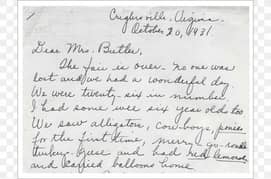 Criglersville, Virginia.
October 20, 1931.
Dear Mrs. Butler,
The fair is over. No one was
lost and we had a wonderful day.
We were twenty-six in number.
I had some wee six year olds too
We saw alligators, cow-boys, ponies
for the first time, merry-go-rounds
turkey, geese and had red lemonade
and carried balloons home